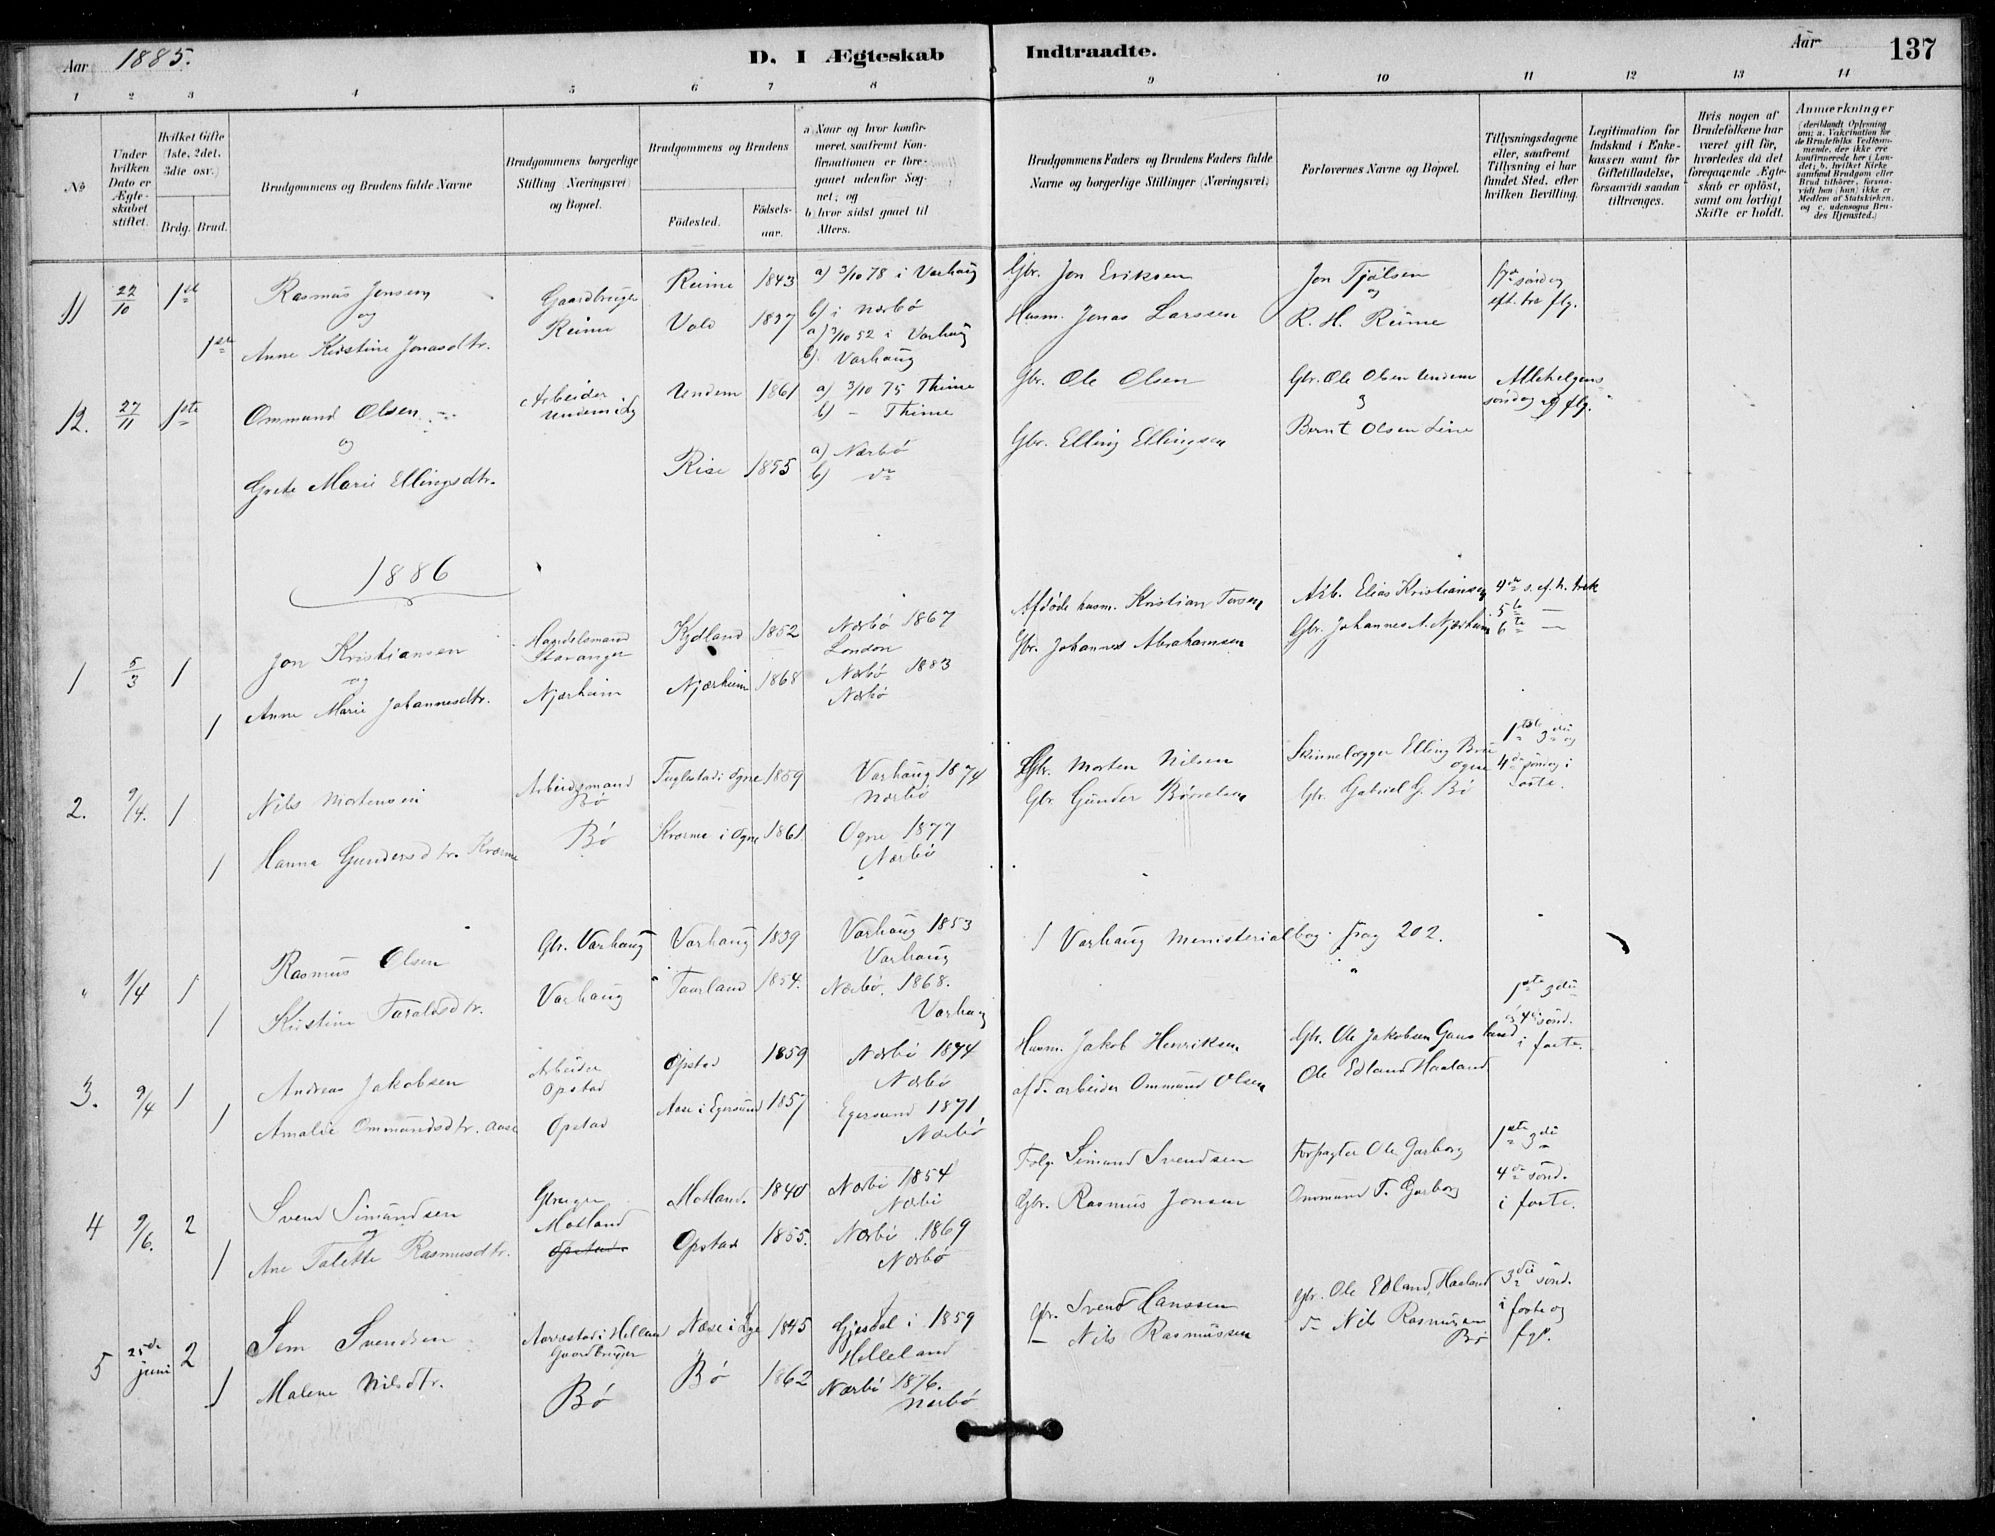 Aar 1885.
D. I Ægteskab Indtraadte.
Aar
137
1 2 3 4 5 6 7 8 9 10 11 12 13 14
No
Under hvilken Dato er Ægteskabet stiftet.
Hvilket Gifte (1ste, 2det, 3die osv.)
Brdg. Brud.
Brudgommens og Brudens fulde Navne
Brudgommens borgerlige Stilling (Næringsvei) og Bopæl.
Brudgommens og Brudens
Födested.
Födselsaar.
a) Naar og hvor konfirmeret, saafremt Konfirmationen er foregaaet udenfor Sognet; og
b) hvor sidst gaaet til Alters.
Brudgommens Faders og Brudens Faders fulde Navne og borgerlige Stillinger (Næringsvei)
Forlovernes Navne og Bopæl.
Tillysningsdagene eller, saafremt Tillysning ei har fundet Sted, efter hvilken Bevilling.
Legitimation for Indskud i Enkekassen samt for Giftetilladelse, forsaavidt saadan tiltrænges.
Hvis nogen af Brudefolkene har været gift för, hvorledes da det foregaaende Ægteskab er oplöst, samt om lovligt Skifte er holdt.
Anmærkninger
(deriblandt Oplysning om: a. Vakcination for de Brudefolks Vedkommende, der ikke ere konfirmerede her i Landet; b. hvilket Kirkesamfund Brudgom eller Brud tilhörer, forsaavidt han (hun) ikke er Medlem af Statskirken, og c. udensogns Brudes Hjemsted.)
11 22/10 1st Rasmus Jensen Gaardbruger Reime 1843 a) 3/10 78 i Varhaug Gbr. Jon Eriksen Jon Tjölsen 17de söndag
og Reime b) i Nærbö og eft. tre flg.
1ste Anne Kirstine Jonasdtr. Vold 1837 a) 3/10 52 i Varhaug Husm. Jonas Larssen R. H. Reime
b) Varhaug
12. 27/11 1ste Ommund Olsen Arbeider Undem 1861 a) 3/10 75 Thime Gbr. Ole Olsen Gbr. Ole Olsen Undem Allehelgens
og b) - Thime söndag og flg.
Grete Marie Ellingsdtr. Rise 1855 a) Nærbö Gbr. Elling Ellingsen Bernt Olsen Line
b) do
1886
1 5/3 1 Jon Kristiansen Handelsmand Kydland 1852 Nærbö 1867 Afdöde husm. Kristian Arb. Elias Kristiansen 4de s. ef. h. trek
og Stavanger London 5te —
1 Anne Marie Johannesdtr. Njærheim Njærheim 1868 Nærbö 1883 Gbr. Johannes Abrahamsen Gbr. Johannes A. Njærheim 6te —
Nærbö
2. 9/4. 1 Nils Mortensen Arbeidsmand Fuglestad i Ogne 1859 Varhaug 1874 Gbr. Morten Nilsen Skinnelægger Elling 1ste 3die og
Bö Nærbö Ogne 4de söndag i
1 Hanna Gundersdtr. Kværme Bö Kværme i Ogne 1861. Ogne 1877 Gbr Gunder Gbr. Gabriel G. Bö faste.
Nærbö
" 9/4 1 Rasmus Olsen Gbr. Varhaug Varhaug 1839 Varhaug 1853 I Varhaug Menisterialbog. Pag 202.
Varhaug
1 Kirstine Taraldsdtr. Varhaug Taarland 1854. Nærbö. 1868.
Varhaug
3. 9/4 1 Andreas Jakobsen Arbeider Opstad 1859 Nærbö 1874 Husm. Jakob Henriksen Gbr. Ole Jakobsen Gausland 1ste 3die
Opstad Nærbö og 4de sönd.
1 Amalie Ommundsdtr. Aase Opstad Aase i Egersund 1857 Egersund 1871 afd. arbeider Ommund Olsen Ole Edland Haaland i faste.
Nærbö
4 9/6. 2 Svend Simundsen Gbruger Motland. 1840 Nærbö 1854 Folg. Simund Svendsen Forpagter Ole Garborg 1ste 3die
og Motland Nærbö 4de sönd.
1 Ane Talette Rasmusdtr. Opstad. Opstad 1855. Nærbö 1869 Gbr. Rasmus Jonsen Ommund T. Garborg i faste.
Nærbö
5 25de juni 2 Sem Svendsen Aarrestad i Helland Næse i Lye 1845 Gjesdal i 1859 Gbr. Svend Hanssen Gbr. Ole Edland, Haaland 3die sönd.
Gaardbruger Helleland i faste og
1 Malene Nilsdtr. Bö Bö 1862 Nærbö 1876. — Nils Rasmussen do Nils Rasmussen Bö flg.
Nærbö